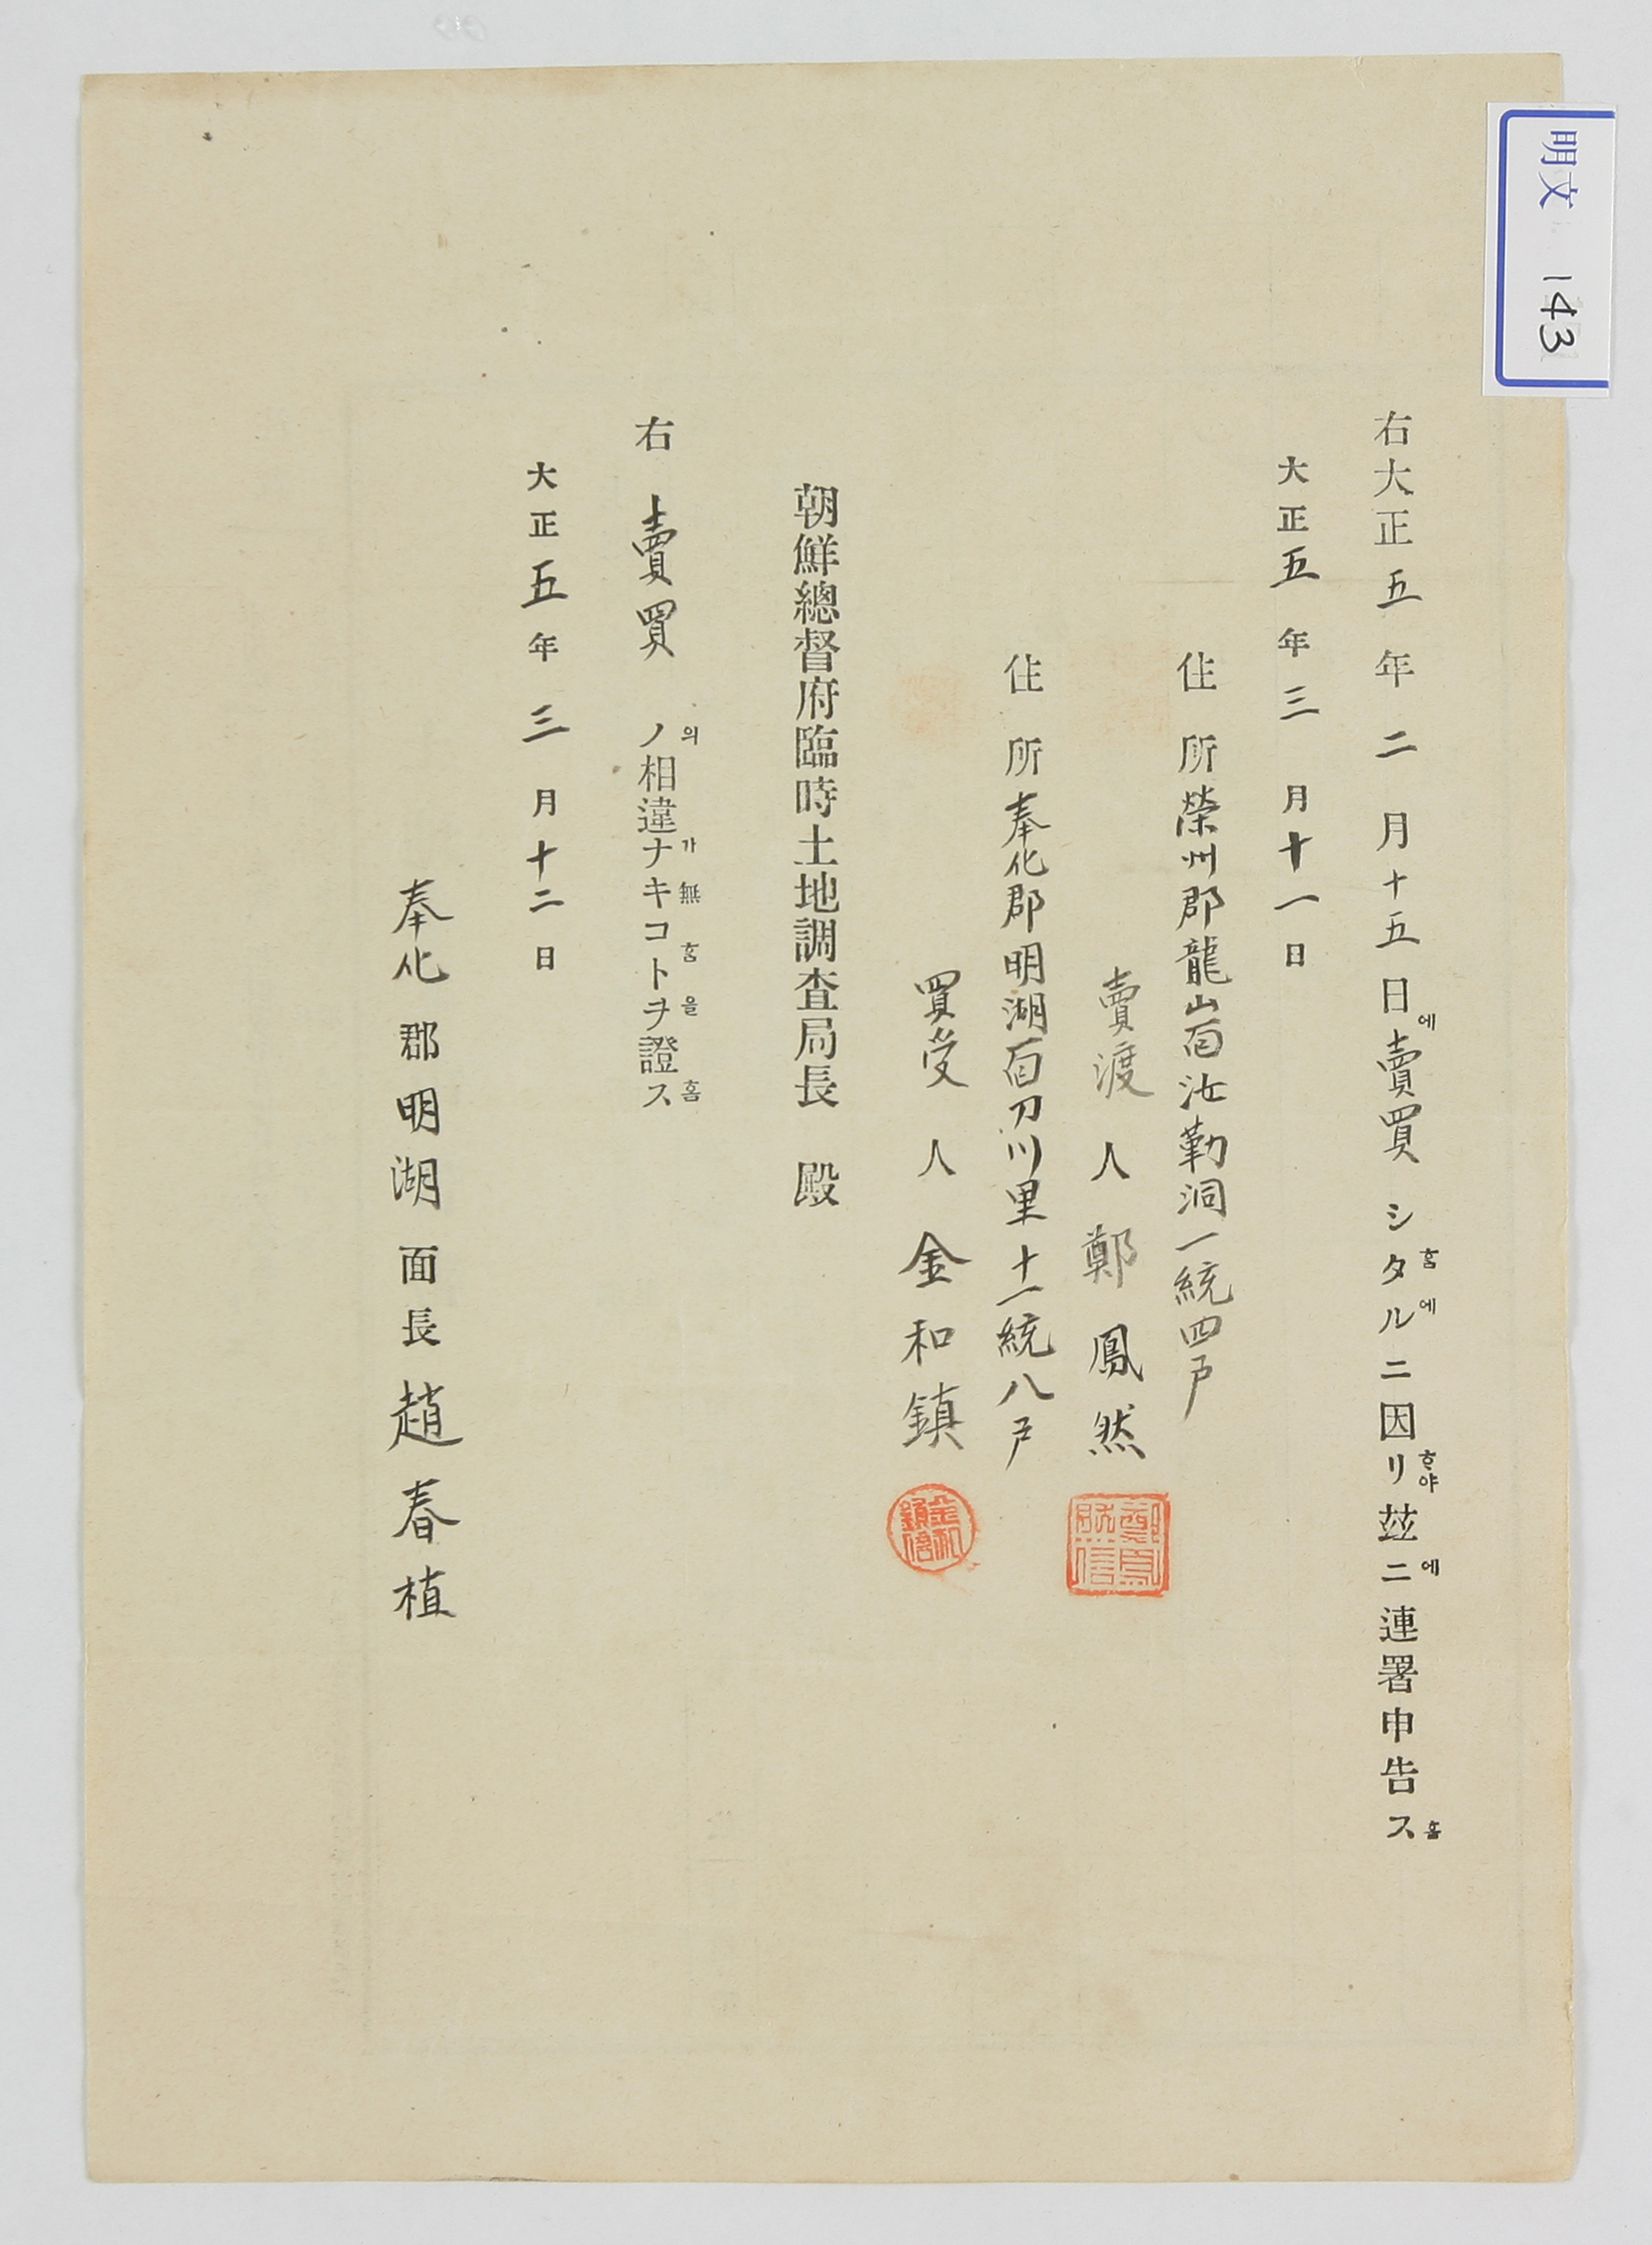 明文 143
右大正五年二月十五日에賣買シタル홈에ニ因リᄒᆞ야玆ニ에連署申告ス홈
大正五年三月十一日
住所榮州郡龍山面汝勒洞一統四戸
賣渡人鄭鳳然
住所奉化郡明湖面刀川里十一統八戸
買受人金和鎮
朝鮮總督府臨時土地調査局長 殿
右賣買ノ의相違ナ가キ無コト홈ヲ을證ス홈
大正五年三月十二日
奉化郡明湖面長趙春植